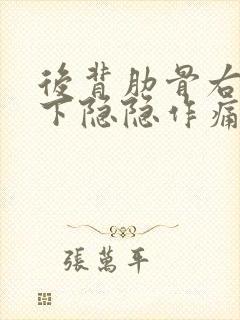 後背肋骨右
下隐隐作痛
張萬年